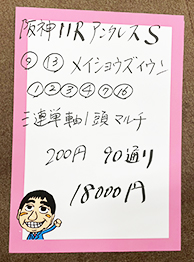 阪神11R アンタレスS
⑨ ⑬ メイショウズイウン
①②③④⑦⑯
三連単軸1頭マルチ
200円 90通り
18000円